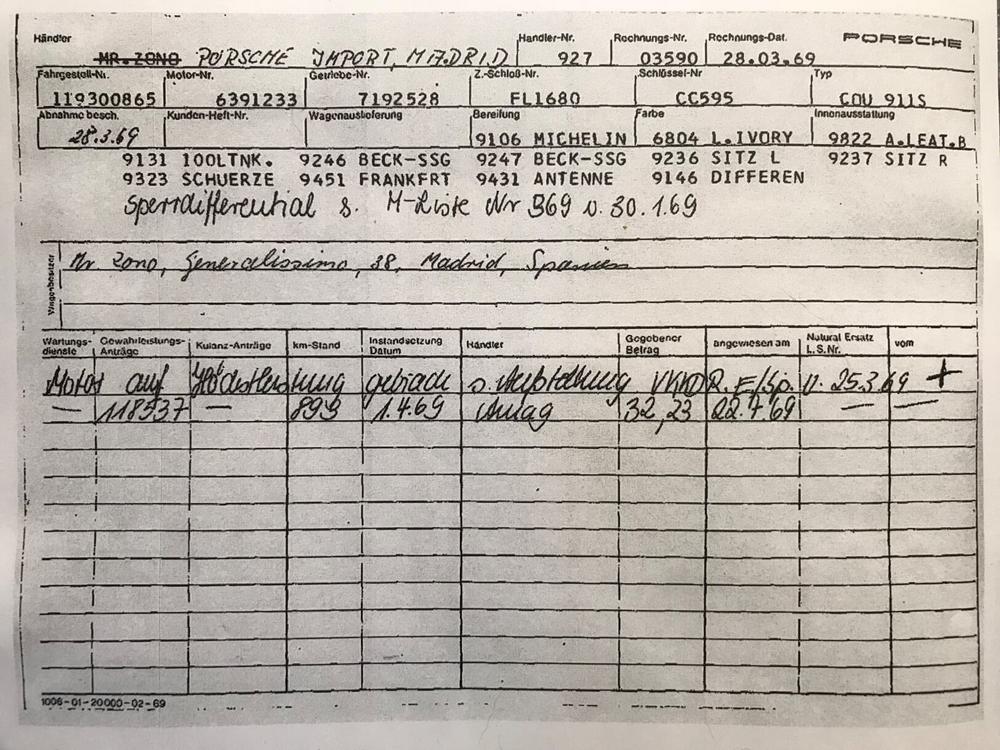 Händler Händler-Nr. Rechnungs-Nr. Rechnungs-Dat. PORSCHE
MR. ZONO PORSCHE IMPORT, MADRID 927 03590 28.03.69
Fahrgestell-Nr. Motor-Nr. Getriebe-Nr. Z.-Schloß-Nr. Schlüssel-Nr Typ
119300865 6391233 7192528 FL1680 CC595 COU 911S
Abnahme besch. Kunden-Heft-Nr. Wagenauslieferung Bereifung Farbe Innenausstattung
28.3.69 9106 MICHELIN 6804 L.IVORY 9822 A.LEAT.B
9131 100LTNK. 9246 BECK-SSG 9247 BECK-SSG 9236 SITZ L 9237 SITZ R
9323 SCHUERZE 9451 FRANKFRT 9431 ANTENNE 9146 DIFFEREN
Sperrdifferential s. M-Liste Nr 369 v. 30.1.69
Wagenbesitzer
Mr Zono, Generalissimo, 38, Madrid, Spanien
Wartungs-dienste Gewährleistungs-Anträge Kulanz-Anträge km-Stand Instandsetzung Datum Händler Gegebener Betrag angewiesen am Natural Ersatz L.S.Nr. vom
Motor auf Höchstleistung gebracht s. Aufstellung R. F/Sp. v. 25.3.69 +
— 118537 — 893 1.4.69 32,23 22.7.69 — —
1006-01-20000-02-69